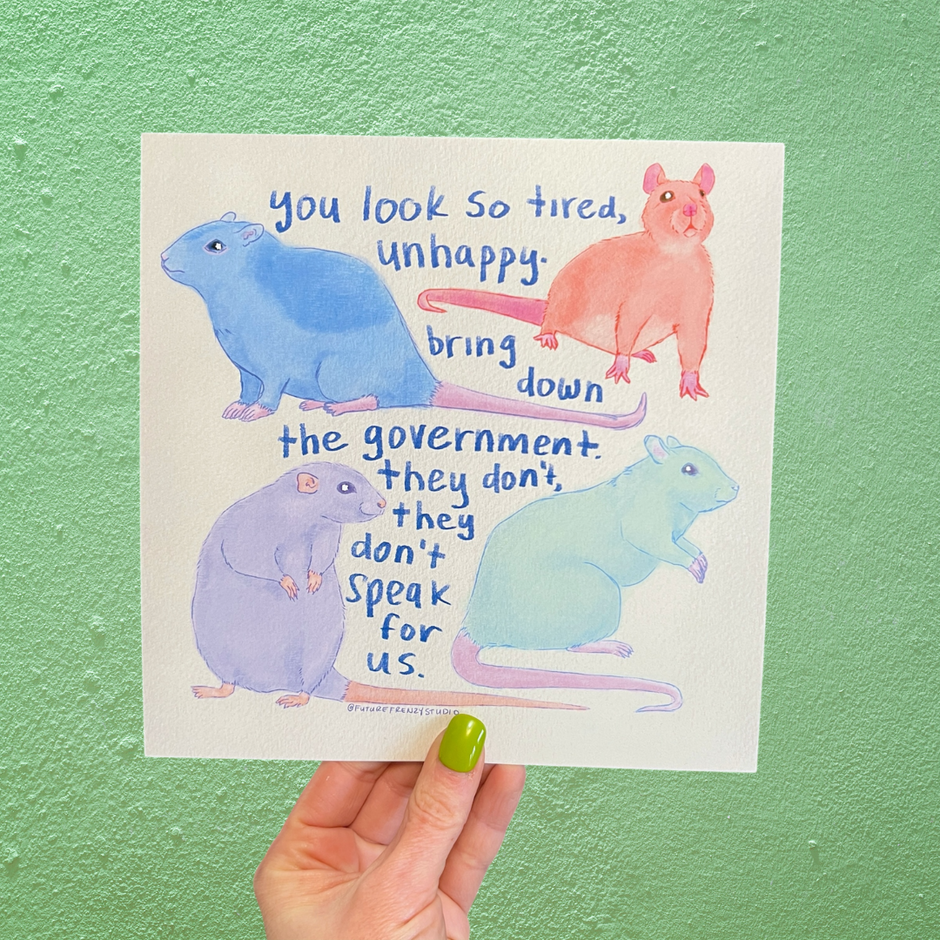 you look so tired,
unhappy.
bring
down
the government.
they don't,
they
don't
speak
for
us.
@FUTUREFRENZYSTUDIO